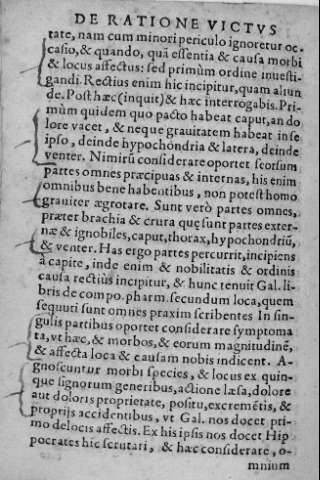 DE RATIONE VICTVS
tate, nam cum minori periculo ignoretur oc-
casio, & quando, quã essentia & causa morbi
& locus affectus: sed primùm ordine inuesti-
gandi. Rectius enim hic incipitur, quam aliun
de. Post hæc (inquit) & hæc interrogabis. Pri-
mùm quidem quo pacto habeat caput, an do
lore vacet, & neque grauitatem habeat in se
ipso, deinde hypochondria & latera, deinde
venter. Nimirũ considerare oportet seorsum
partes omnes præcipuas & internas, his enim
omnibus bene habentibus, non potest homo
grauiter ægrotare. Sunt verò partes omnes,
præter brachia & crura quę sunt partes exter-
næ & ignobiles, caput, thorax, hypochondriũ,
& venter. Has ergo partes percurrit, incipiens
à capite, inde enim & nobilitatis & ordinis
causa rectiùs incipitur, & hunc tenuit Gal. li-
bris de compo. pharm. secundum loca, quem
sequuti sunt omnes praxim scribentes In sin-
gulis partibus oportet considerare symptoma
ta, vt hæc, & morbos, & eorum magnitudinẽ,
& affecta loca & causam nobis indicent. A-
gnoscuntur morbi species, & locus ex quin-
que signorum generibus, actione læsa, dolore
aut doloris proprietate, positu, excremẽtis, &
proprijs accidentibus, vt Gal. nos docet pri-
mo de locis affectis. Ex his ipsis nos docet Hip
pocrates hic scrutari, & hæc considerare, o-
mnium